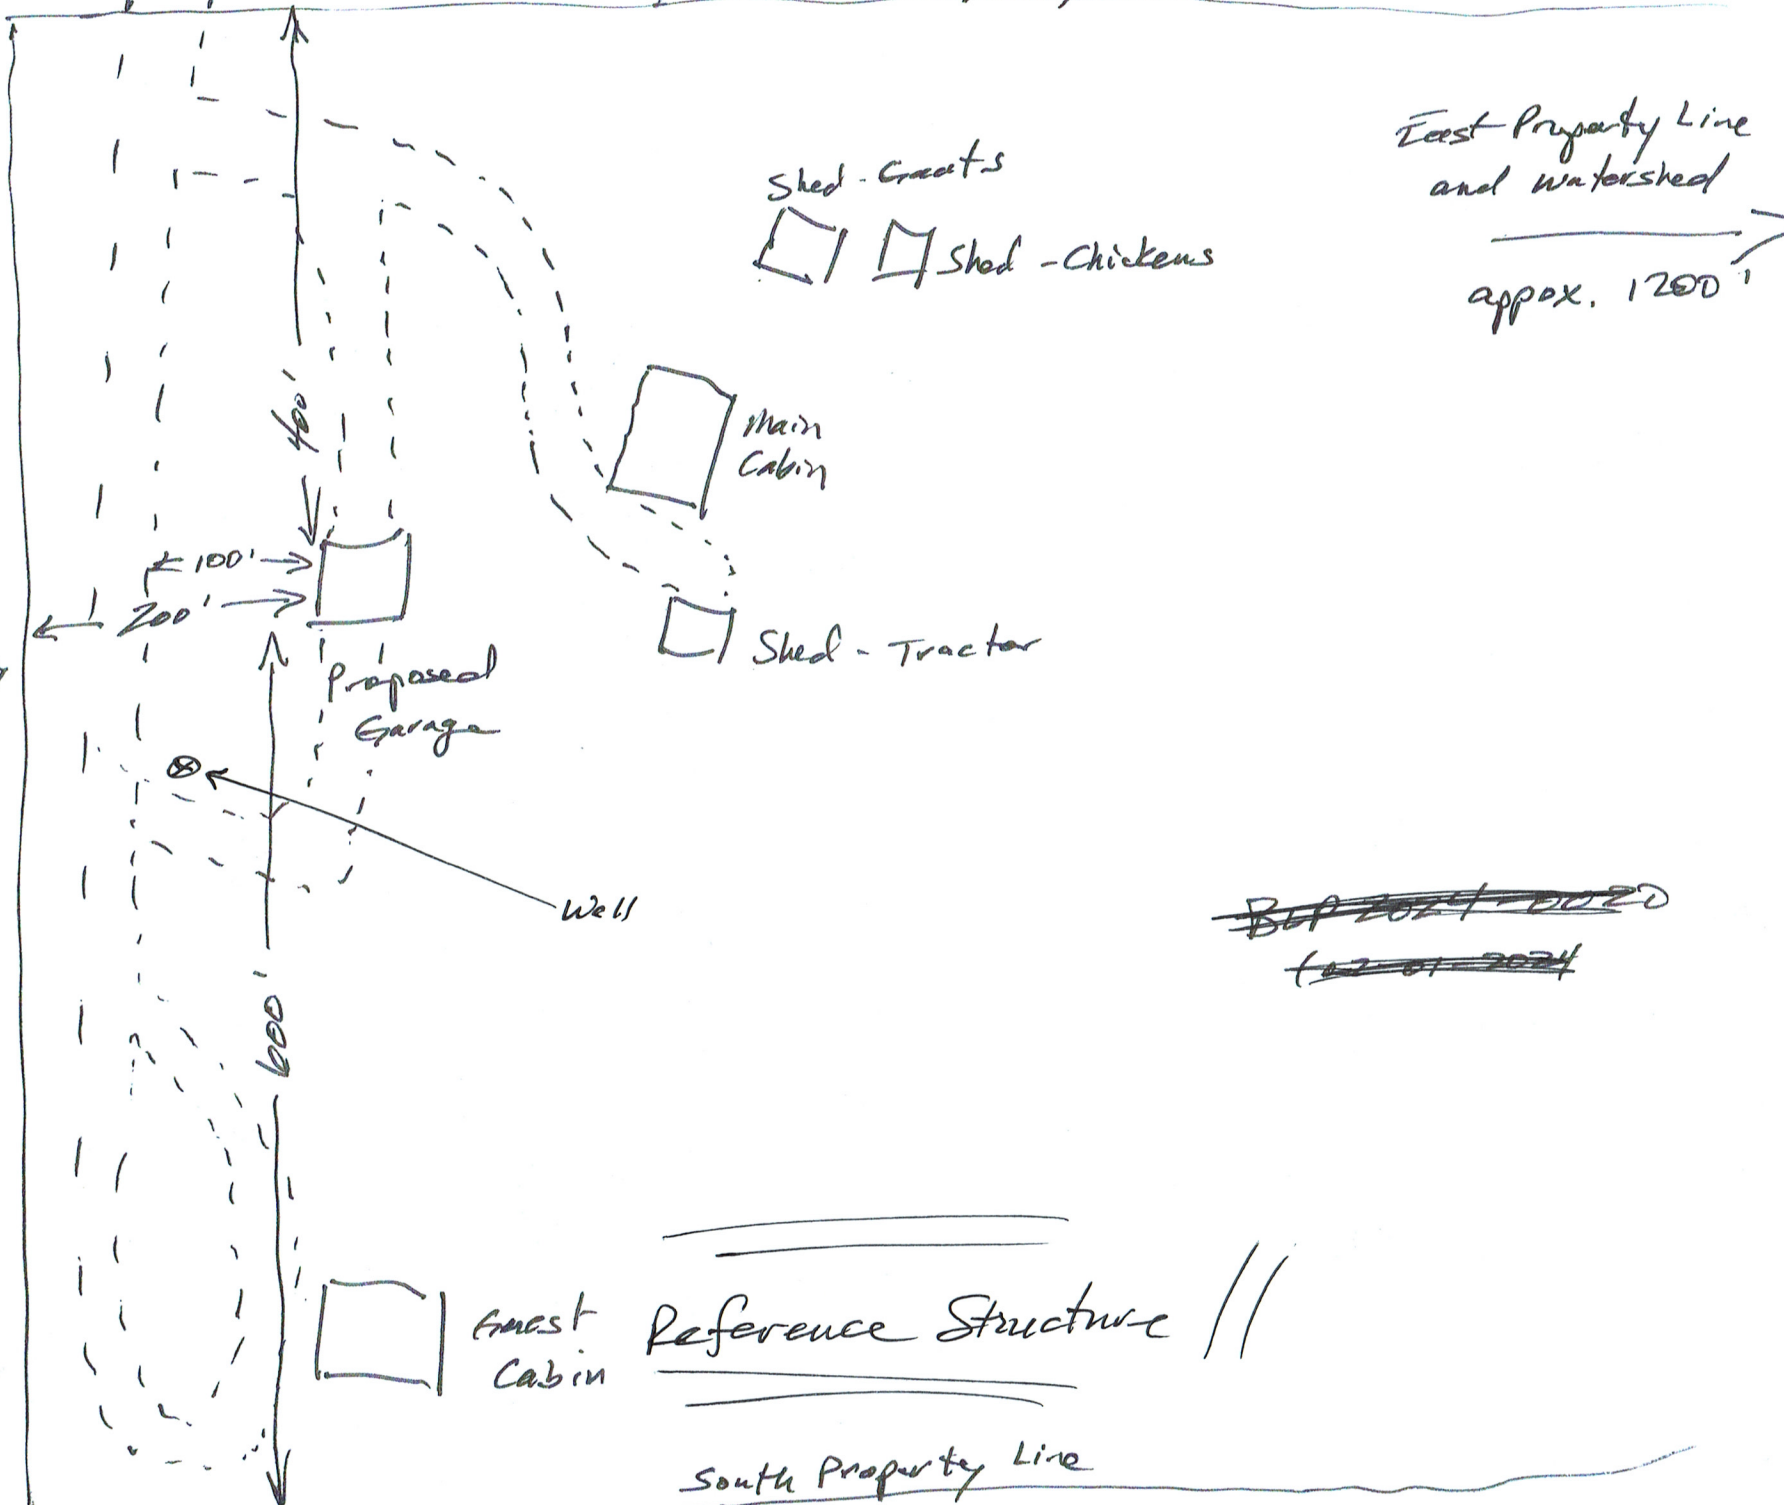 East Property Line
and watershed
appox. 1200'
Shed - Goats
Shed - Chickens
400'
Main
Cabin
100'
200'
Shed - Tractor
Proposed
Garage
Well
600'
Guest
Cabin
Reference Structure
South Property Line